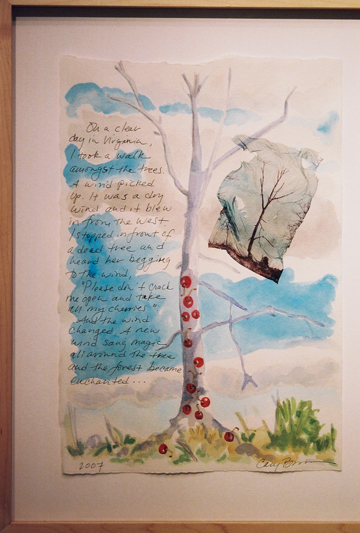 On a clear
day in Virginia,
I took a walk
amongst the trees.
A wind picked
up. It was a dry
wind and it blew
from the west.
I stopped in front of
a dead tree and
heard her begging
to the wind,
"Please don't crack
me open and take
all my cherries"
And the wind
changed. A new
wind sang magic
all around the tree
and the forest became
enchanted...
2007